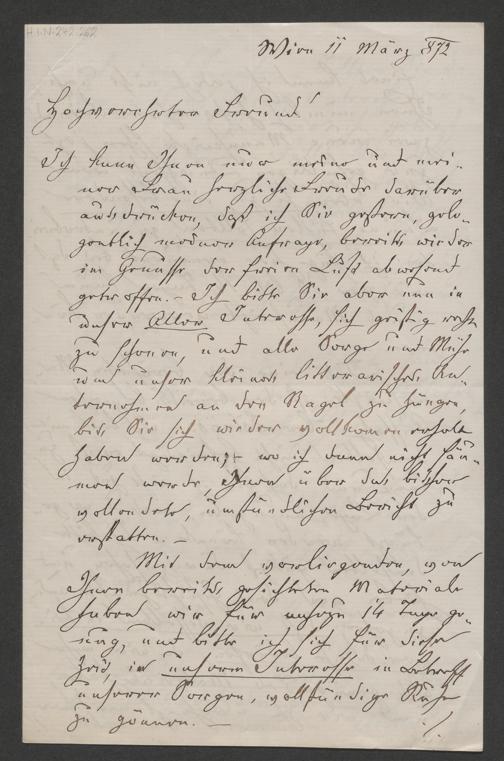 H.I.N. 242.262
Wien 11 März 872
Hochverehrter Freund!
Ich kann Ihnen nur meine und mei-
ner Frau herzliche Freude darüber
ausdrücken, daß ich Sie gestern, gele-
gentlich meiner Anfrage, bereits wieder
im Genusse der freien Luft abwesend
getroffen. – Ich bitte Sie aber nun in
unser Aller Interesse, sich geistig recht
zu schonen, und alle Sorge und Mühe
um unser kleines litterarisches Un-
ternehmen an den Nagel zu hängen,
bis Sie sich wieder vollkomen erholt
haben werden; – wo ich dann nicht säu-
men werde, Ihnen über das bisher
vollendete, umständlichen Bericht zu
erstatten. –
Mit dem vorliegenden, von
Ihnen bereits gesichteten Materiale
haben wir für nahezu 14 Tage ge-
nug, und bitte ich sich für diese
Zeit, in unserem Interesse in Betreff
unserer Sorgen, vollständige Ruhe
zu gönnen. –
./.